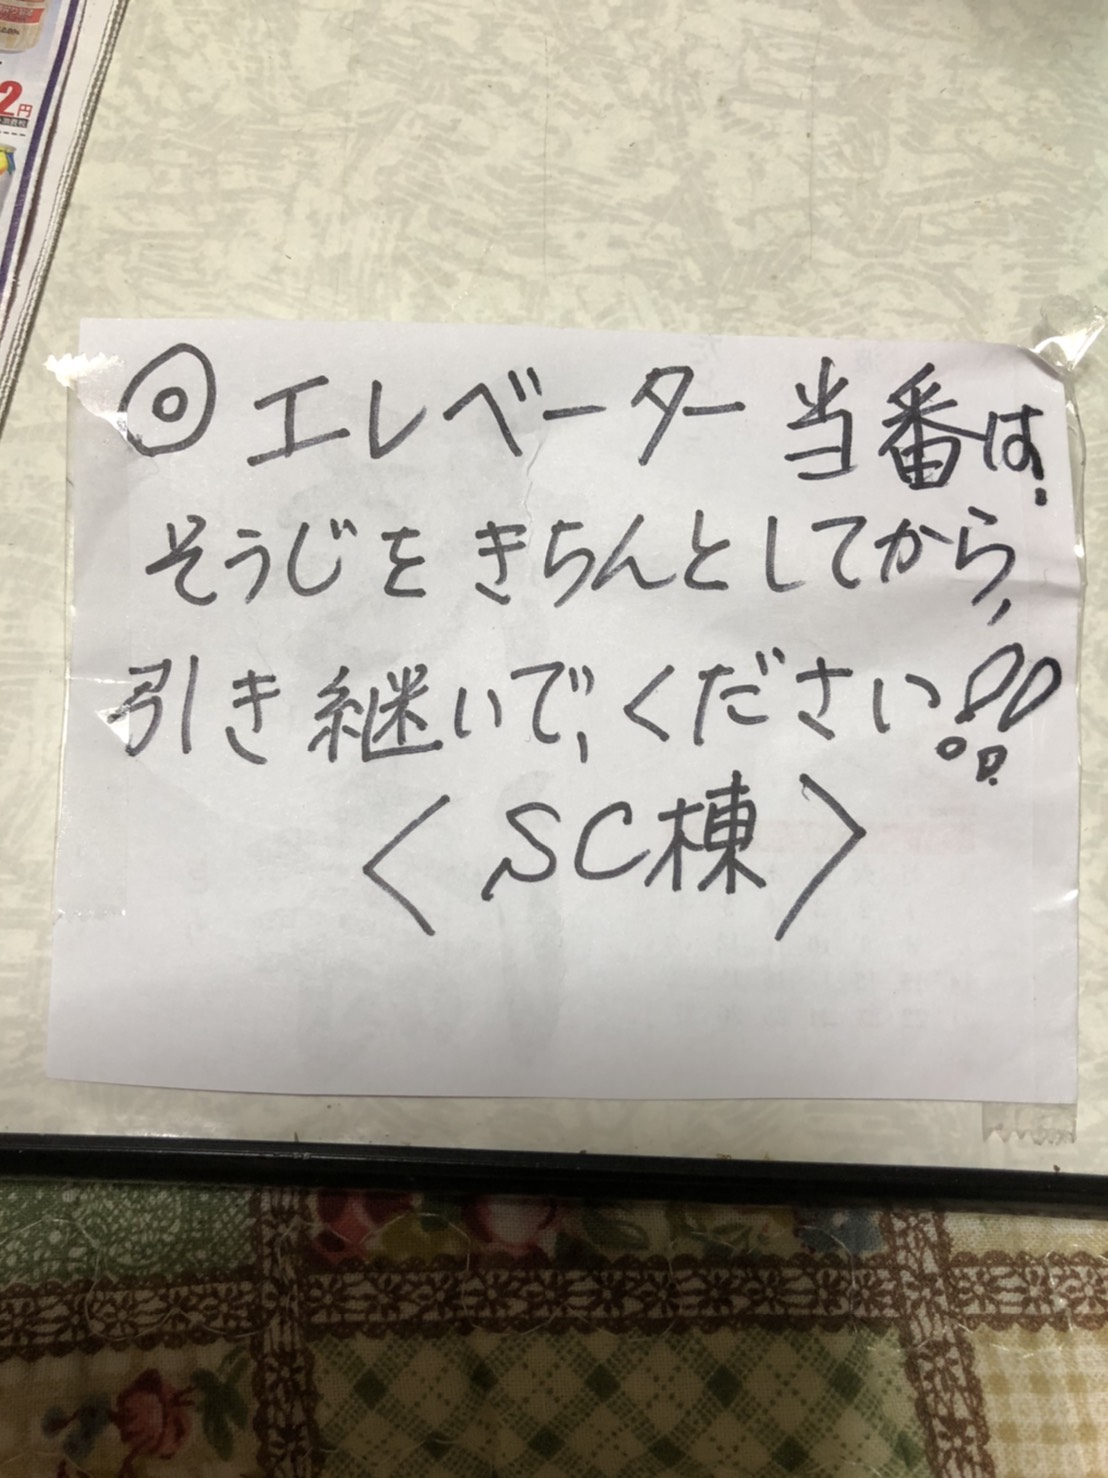 2円
◎エレベーター当番は、
そうじをきちんとしてから、
引き継いで、ください!!
〈SC棟〉